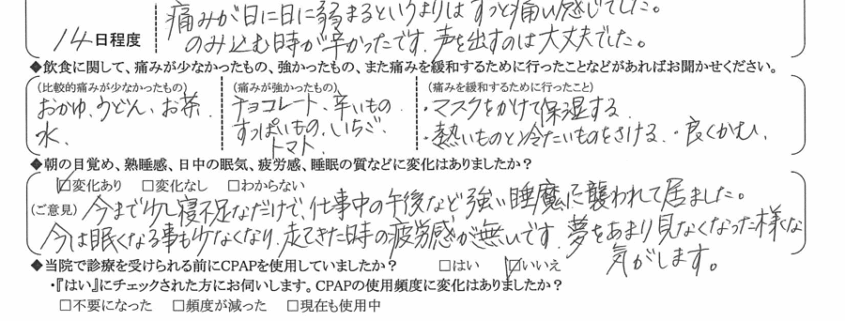 痛みが日に日に弱まるというよりは ずっと痛い感じでした。
14日程度 のみ込む時が辛かったです。声を出すのは大丈夫でした。
◆飲食に関して、痛みが少なかったもの、強かったもの、また痛みを緩和するために行ったことなどがあればお聞かせください。
(比較的痛みが少なかったもの) (痛みが強かったもの) (痛みを緩和するために行ったこと)
おかゆ、うどん、お茶、 チョコレート、辛いもの、 ・マスクをかけて保湿する
水、 すっぱいもの、いちご、 ・熱いものと冷たいものをさける、・良くかむ、
トマト
◆朝の目覚め、熟睡感、日中の眠気、疲労感、睡眠の質などに変化はありましたか?
☑変化あり □変化なし □わからない
(ご意見) 今まで少し寝不足なだけで、仕事中の午後など強い睡魔に襲われて居ました。
今は眠くなる事も少なくなり、走てきた時の疲労感が無いです。夢をあまり見なくなった様な
気がします。
◆当院で診療を受けられる前にCPAPを使用していましたか? □はい ☑いいえ
・『はい』にチェックされた方にお伺いします。CPAPの使用頻度に変化はありましたか?
□不要になった □頻度が減った □現在も使用中